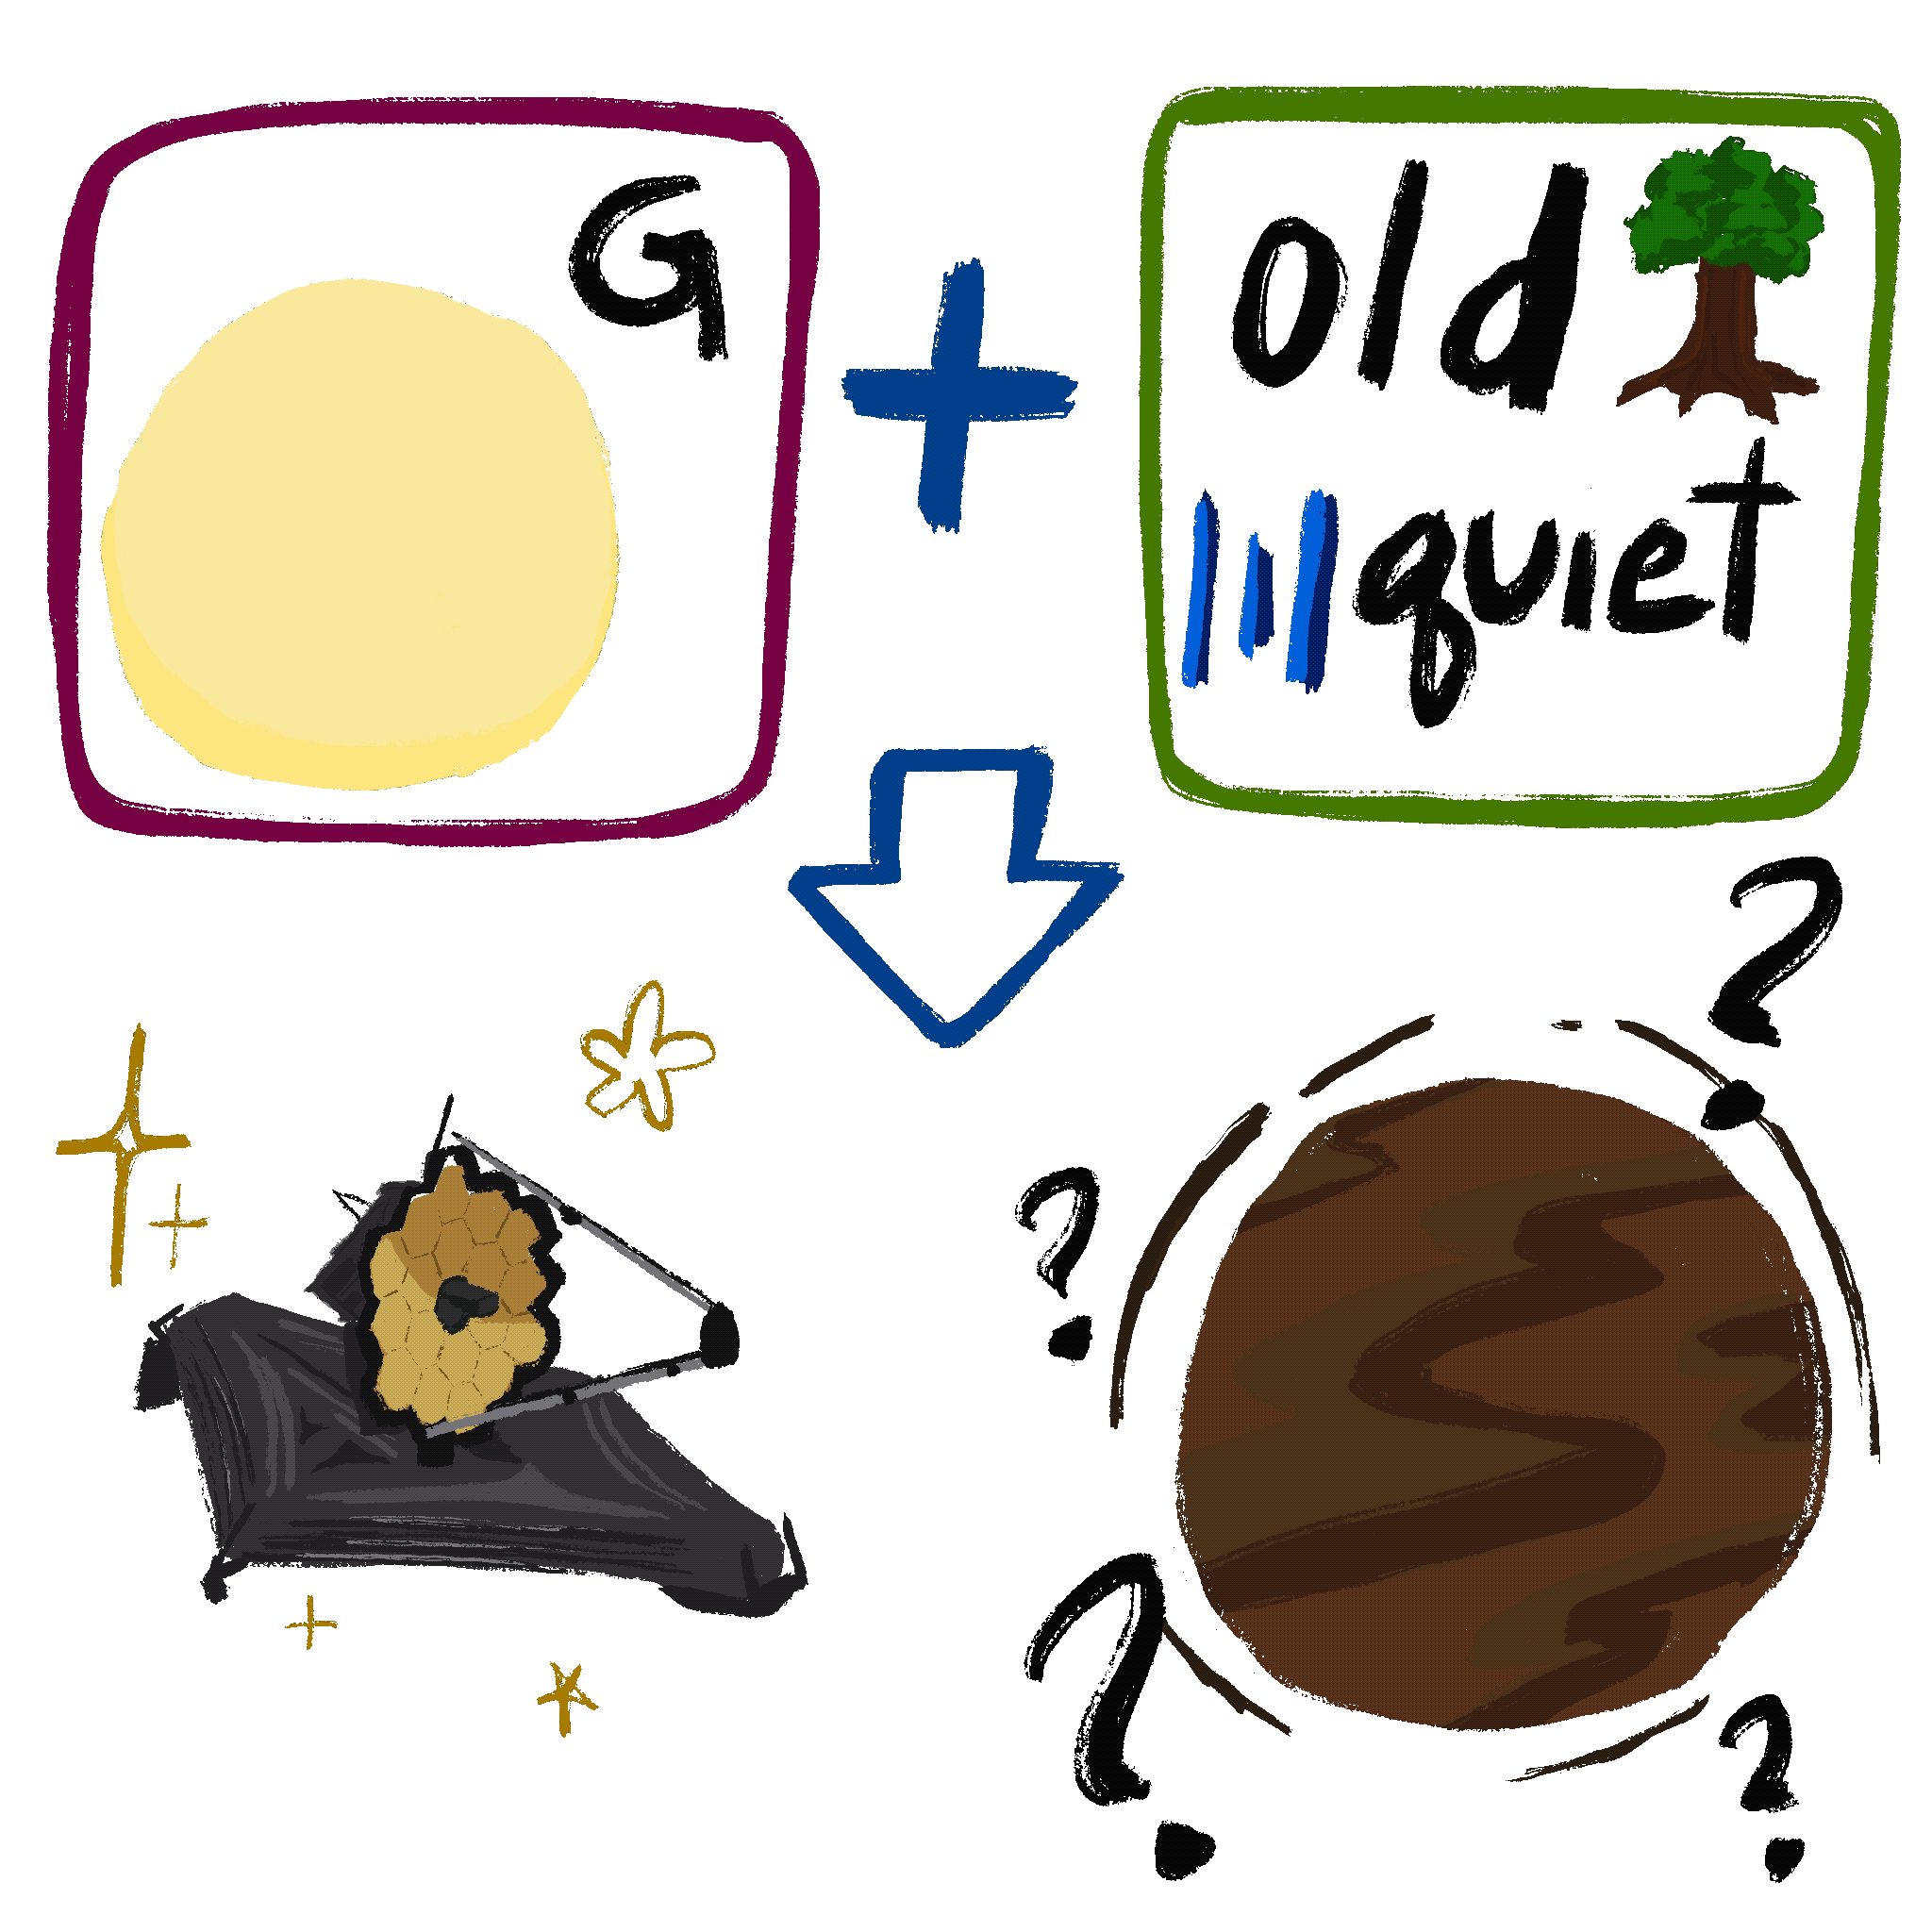 G
+
old
quiet
?
?
?
?